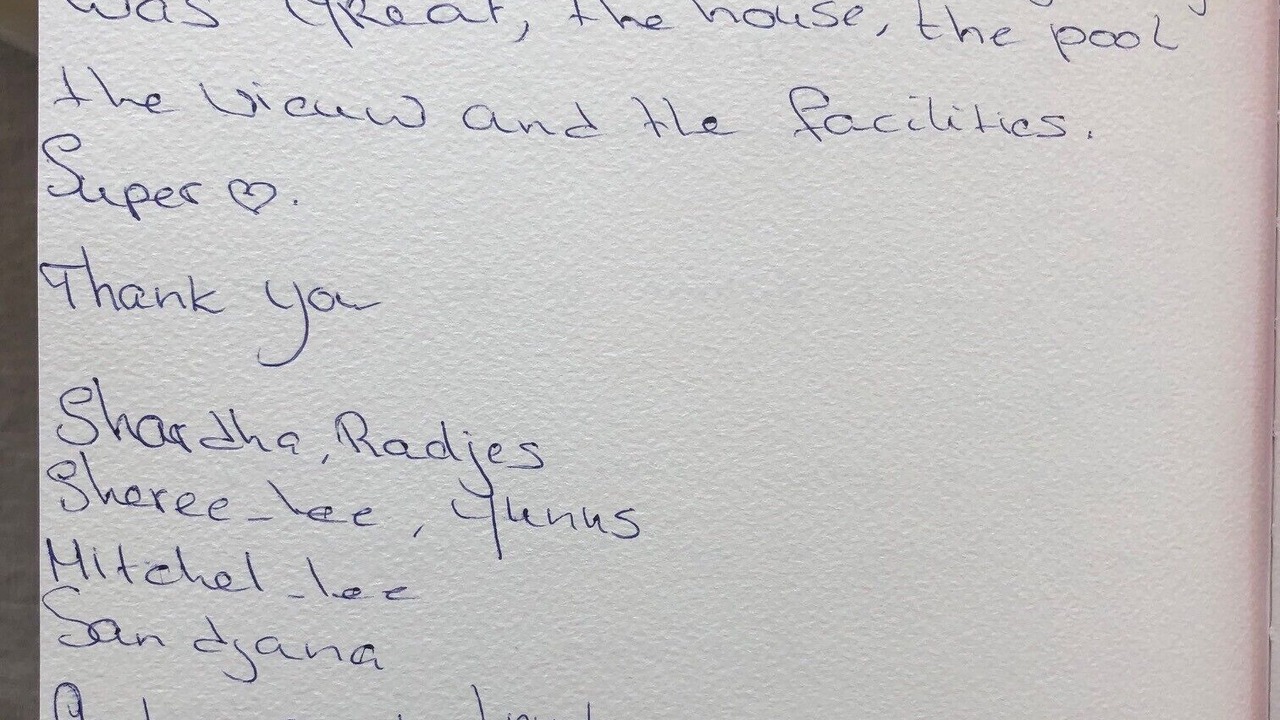 was great, the house, the pool
the vieuw and the facilities.
Super ♡.
Thank you
Shardha, Radjes
Sheree-lee, Yunus
Mitchel-lee
Sandjana